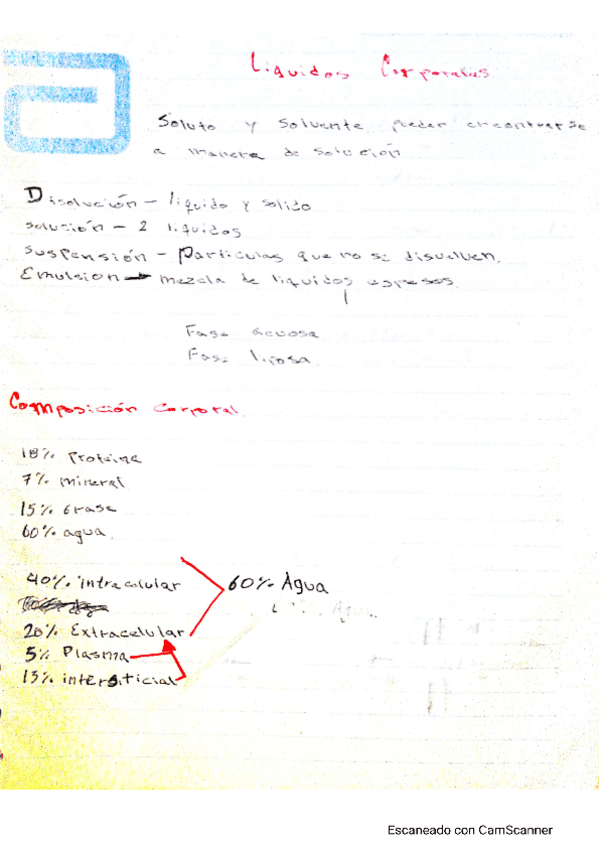 Liquidos Corporales
Soluto y solvente pueden encontrarse
a manera de solución
Disolución - liquido y solido
solusión - 2 liquidos
suspensión - Particulas que no se disuelven.
Emulsion → mezcla de liquidos espesos.
Fase acuosa
Fase liposa
Composición corporal.
18% Proteina
7% mineral
15% Grasa
60% agua.
40% intracelular
60% Agua
20% Extracelular
5% Plasma
15% intersiticial
Escaneado con CamScanner